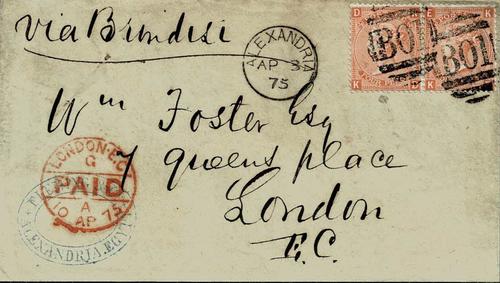 via Brindisi
ALEXANDRIA
AP 3
75
D K
K D
E K
K E
B01
B01
Wm Foster Esq
7 queens place
London
E.C.
LONDON E.C
G
PAID
A
10 AP 75
ALEXANDRIA. EGYPT